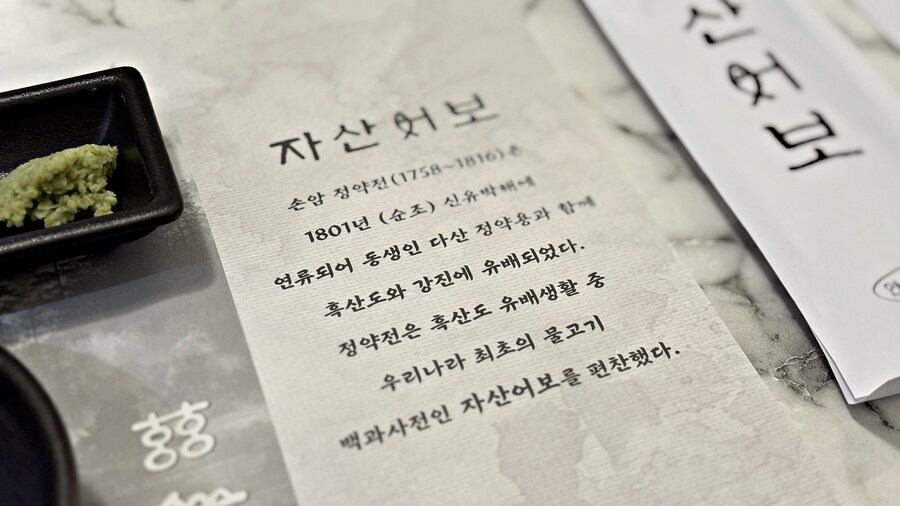 자산어보
손암 정약전(1758~1816)은
1801년 (순조) 신유박해에
연류되어 동생인 다산 정약용과 함께
흑산도와 강진에 유배되었다.
정약전은 흑산도 유배생활 중
우리나라 최초의 물고기
백과사전인 자산어보를 편찬했다.
산어보